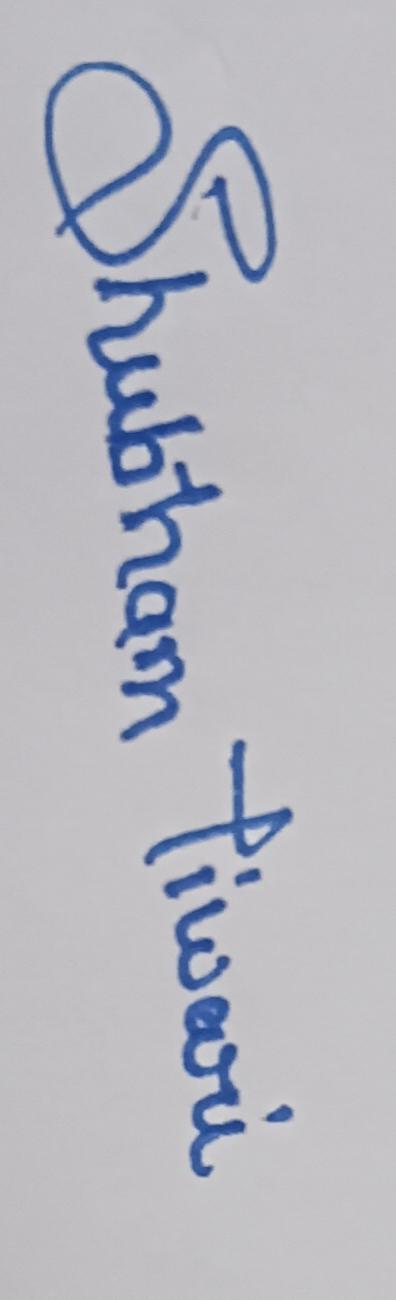 Shubham Tiwari